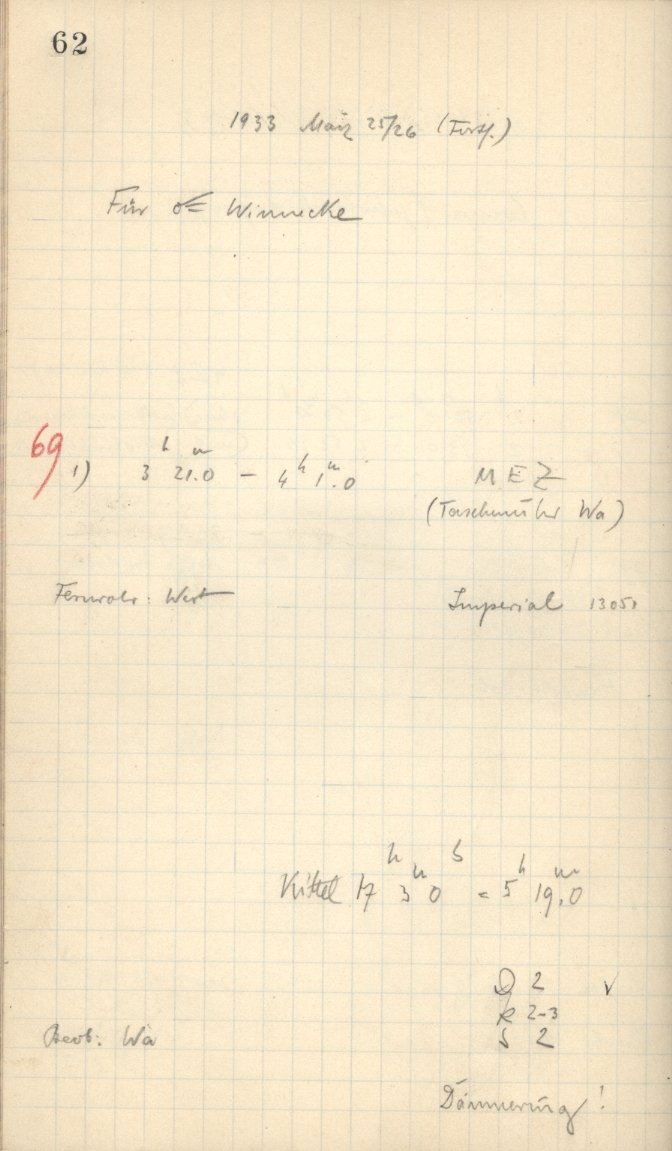 62
1933 März 25/26 (Forts.)
Für ☄ Winnecke
69
1) 3 h 21.0 m – 4 h 1.0 m MEZ
(Taschenuhr Wa)
Fernrohr: West Imperial 13051
Knittel 17 h 3 m 0 s = 5 h 19.0 m
D 2 v
R 2-3
S 2
Beob: Wa
Dämmerung!